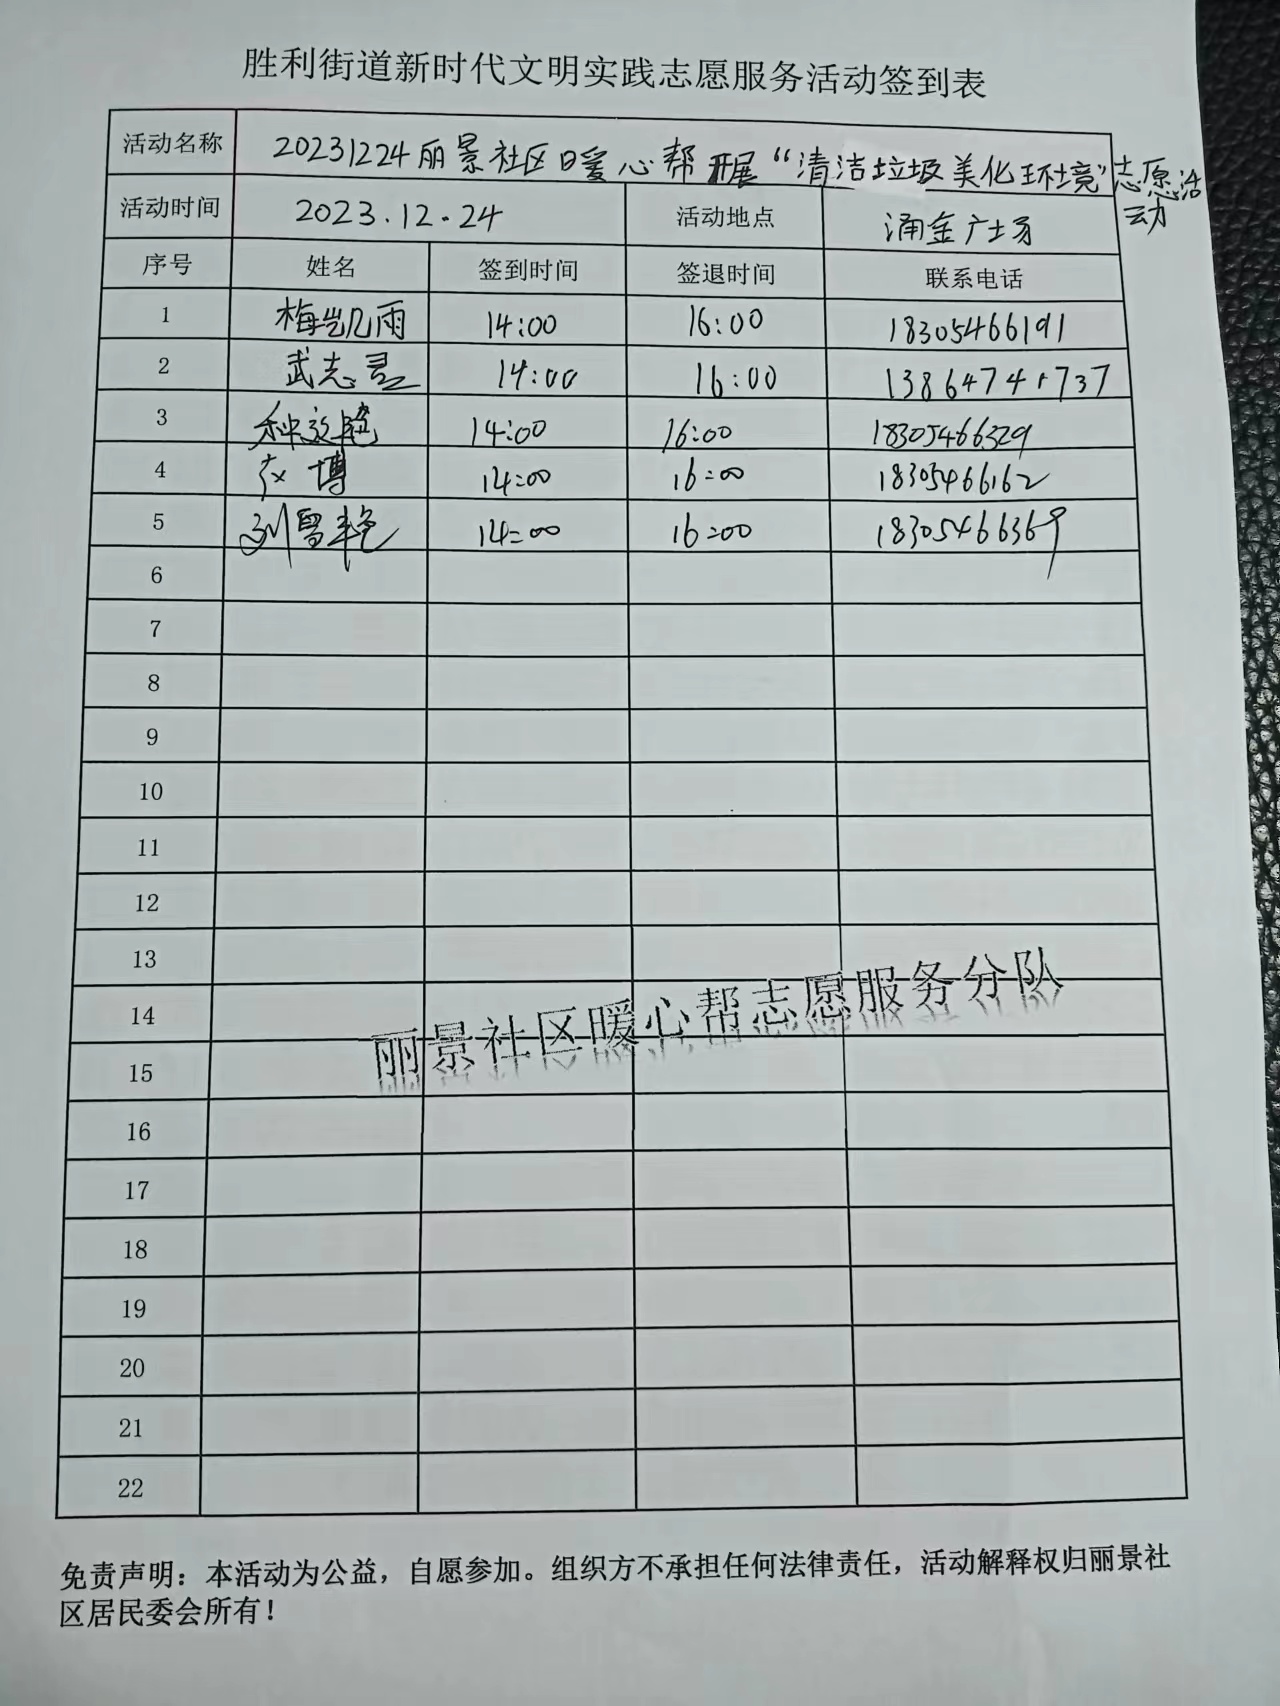 胜利街道新时代文明实践志愿服务活动签到表
活动名称 20231224丽景社区暖心帮开展“清洁垃圾美化环境”志愿活动
活动时间 2023.12.24 活动地点 涌金广场
序号 姓名 签到时间 签退时间 联系电话
1 梅凯雨 14:00 16:00 18305466191
2 武志灵 14:00 16:00 13864741737
3 14:00 16:00 18305466329
4 博 14:00 16:00 18305466162
5 刘曾艳 14:00 16:00 18305466369
6
7
8
9
10
11
12
13
14
丽景社区暖心帮志愿服务分队
15
16
17
18
19
20
21
22
免责声明：本活动为公益，自愿参加。组织方不承担任何法律责任，活动解释权归丽景社
区居民委会所有！